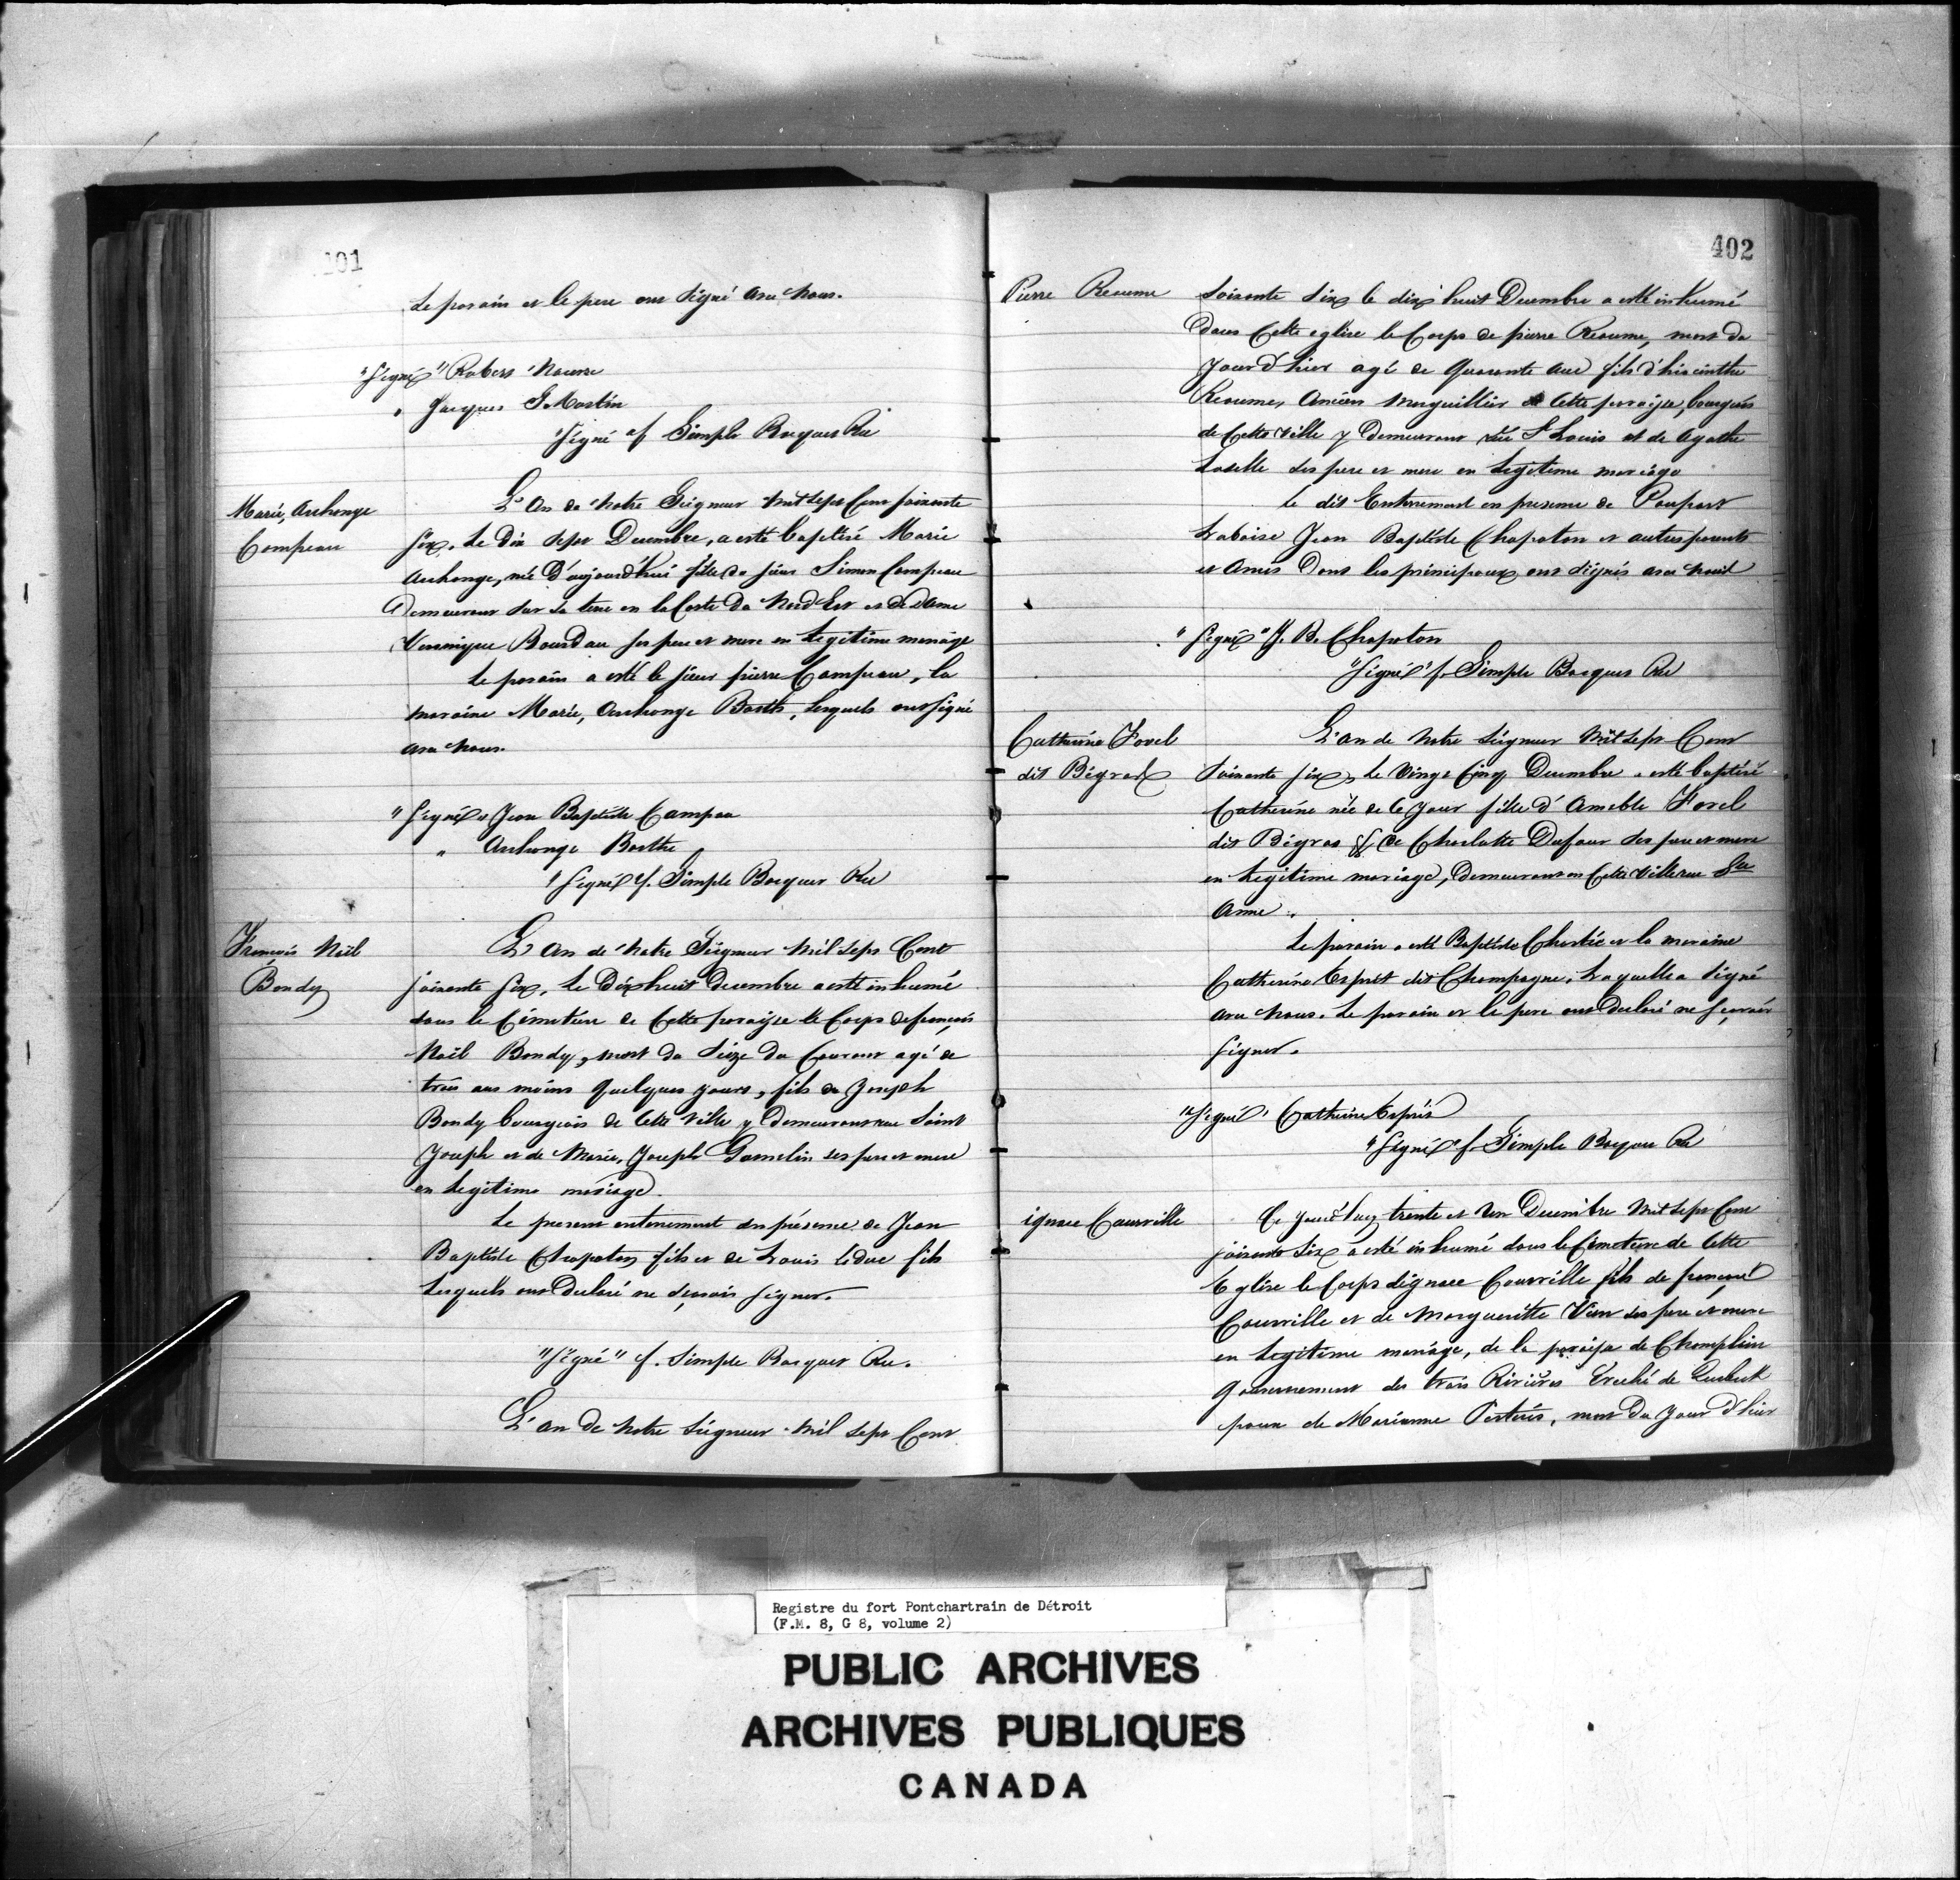 401
Le parain et le pere ont signé avec nous.
"Signé" Robert Navarre
" Jacques G Martin
"Signé" f. Simple Bocquet Rec
Marie, Archange
Campeau
L'An de Notre Seigneur mil sept Cent soixante
six, le dix sept Decembre, a esté baptisé Marie
Archange, née d'aujourd'hui fille du sieur Simon Campeau
Demeurant sur sa terre en la Coste du Nord Est et de dame
Veronique Bourdau ses pere et mere en Legitime mariage
Le parain a esté le sieur pierre Campeau, la
maraine Marie, Archange Barth, lesquels ont signé
avec nous.
"Signé" Jean Baptiste Campau
" Archange Barthe
"Signé" f. Simple Bocquet Rec
François Noël
Bondy
L'An de Notre Seigneur mil sept Cent
soixante six, le Dix huit decembre a esté inhumé
dans le Cimetiere de Cette paroisse le Corps de françois
Noël Bondy, mort du Seize du Courant agé de
trois ans moins quelques jours, fils de Joseph
Bondy bourgeois de Cette Ville y demeurant rue Saint
Joseph et de Marie, Joseph Gamelin ses pere et mere
en Legitime mariage.
Le present enterrement en présence de Jean
Baptiste Chapoton fils et de Louis leduc fils
Lesquels ont declaré ne sçavoir signer.
"Signé" f. Simple Bocquet Rec.
L'an de Notre Seigneur mil sept Cent
402
Pierre Reaume
Soixante Six le dix huit Decembre a esté inhumé
Dans Cette eglise le Corps de pierre Reaume, mort du
Jour d'hier agé de quarante ans fils d'hiacinthe
Reaume, Ancien marguillier de Cette paroisse, bourgeois
de Cette Ville y Demeurant rue St Louis et de Agathe
Laselle ses pere et mere en Legitime mariage
Le dit Enterrement en presence de Poupart
Laboise Jean Baptiste Chapoton et autres parents
et Amis Dont les principaux ont signés avec nous
"Signé" J. B. Chapoton
"Signé" f. Simple Bocquet Rec
Catherine Forel
dit Bigras
L'an de Notre Seigneur Mil sept Cent
Soixante six, le Vingt Cinq Decembre a esté baptisé
Catherine née de Ce Jour fille d'Amable Forel
dit Bigras & de Charlotte Dufour ses pere et mere
en Legitime mariage, demeurant en Cette Ville rue Ste
Anne.
Le parain a esté Baptiste Chartié et la maraine
Catherine Esprit dit Champagne, Laquelle a signé
avec nous. Le parain et le pere ont declaré ne sçavoir
signer.
"Signé" Catherine Esprit
"Signé" f. Simple Bocquet Rec
ignace Courville
Ce jourd'huy trente et Un Decembre Mil sept Cent
soixante Six a esté inhumé dans le Cimetiere de Cette
Eglise le Corps d'ignace Courville fils de françois
Courville et de Margueritte Vien ses pere et mere
en Legitime mariage, de la paroisse de Champlain
Gouvernement des trois Rivières Eveché de Quebeck
epoux de Marianne Pertuis, mort du Jour d'hier
Registre du fort Pontchartrain de Détroit
(F.M. 8, G 8, volume 2)
PUBLIC ARCHIVES
ARCHIVES PUBLIQUES
CANADA